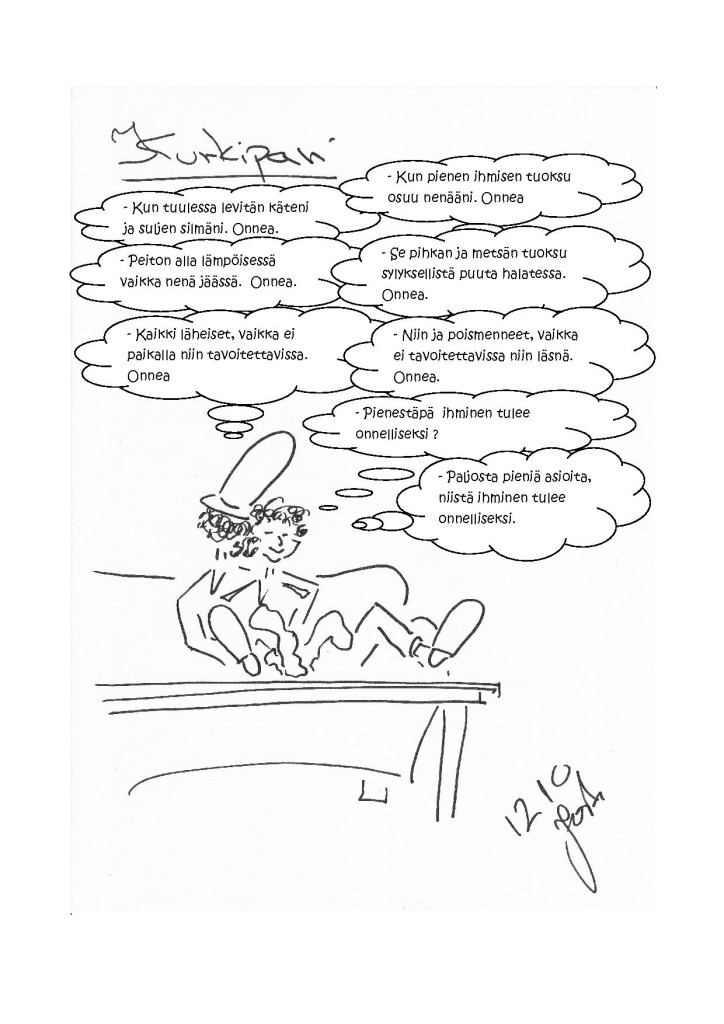 Kurkipari
- Kun pienen ihmisen tuoksu
osuu nenääni. Onnea
- Kun tuulessa levitän käteni
ja suljen silmäni. Onnea.
- Peiton alla lämpöisessä
vaikka nenä jäässä. Onnea.
- Se pihkan ja metsän tuoksu
sylyksellistä puuta halatessa.
Onnea.
- Kaikki läheiset, vaikka ei
paikalla niin tavoitettavissa.
Onnea
- Niin ja poismenneet, vaikka
ei tavoitettavissa niin läsnä.
Onnea.
- Pienestäpä ihminen tulee
onnelliseksi ?
- Paljosta pieniä asioita,
niistä ihminen tulee
onnelliseksi.
12 10